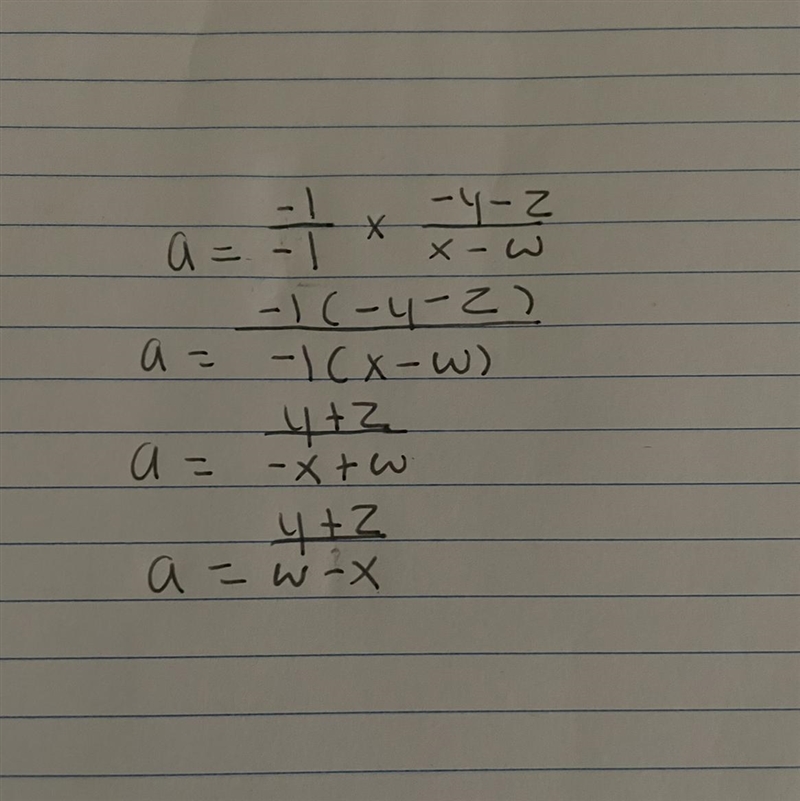 a = -1/-1 × -y-z/x-w
a = -1(-y-z)/-1(x-w)
a = y+z/-x+w
a = y+z/w-x